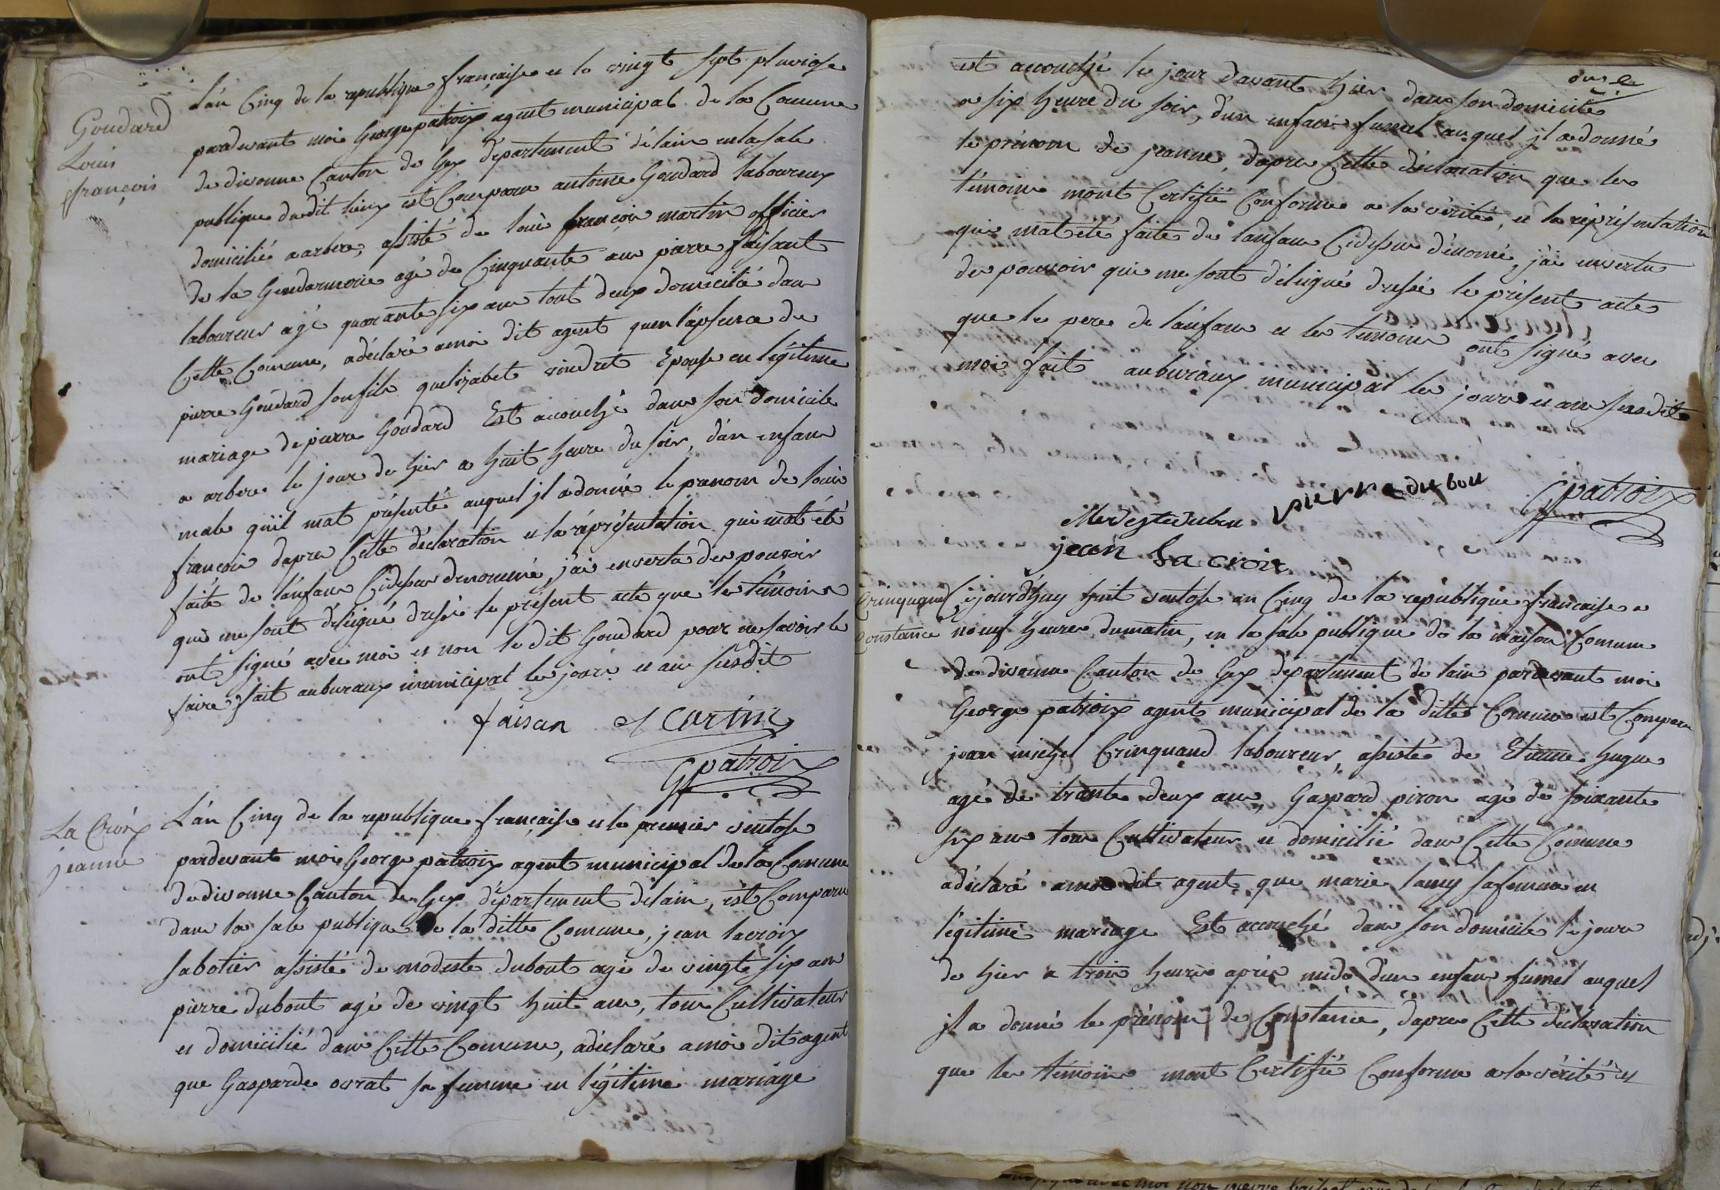 Goudard
Louis
françois
L'an Cinq de la republique française et le vingt sept pluviose
pardevant moi George patroix agent municipal de la Comune
de divonne Canton de Gex département de lain en la sale
publique dudit lieux est Comparu antoine Goudard laboureux
domicilié a arbere, assisté de loui françoi martin officier
de la Gendarmerie agé de Cinquante an pierre faisant
laboureur agé quarante six an tout deux domicilié dans
Cette Comune, a déclaré a moi dit agent quen l'absence de
pierre Goudard son fils quelizabet vindret Epouse en légitime
mariage de pierre Goudard Est accouché dans son domicile
a arbere le jour de hier a huit heure du soir, d'un enfans
male qu'il mat présenté auquel jl a donné le prenom de loui
françoi dapre Cette déclaration et la répréséntation qui mat été
faite de l'anfans Cidessus denommé, jai envertu des pouvoir
qui me sont délégué dressé le présent acte que le témoins
ont signé avec moi et non le dit Goudard pour ne savoir le
faire, fait au buraux municipal le jour et an susdit
faisan Martin
Gpatroix
La Croix
jeanne
L'an Cinq de la republique française et le premier ventose
pardevant moi George patroix agent municipal de la Comune
de divonne Canton de Gex département de lain, est Comparu
dans la sale publique de la ditte Comune, jean lacroix
sabotier assisté de modeste dubout agé de vingt six an
pierre dubout agé de vingt huit an, tous Cultivateur
et domicilié dans Cette Comune, a déclaré a moi dit agent
que Gasparde ovrat sa femme en légitime mariage
onze
est accouché le jour davant hier dans son domicile
a six heure du soir, d'un enfans fumel auquel jl a donné
le prénom de jeanne, dapre Cette déclaration que les
témoins mont Certifié Conforme a la vérité, et la répréséntation
qui mat été faite de l'anfans Cidessus dénomé, jai envertu
des pouvoir qui me sont délégué dressé le présent acte
que le pere de l'anfans et les temoins ont signé avec
moi fait au buraux municipal le jour et an susdit
pierre du bou Gpatroix
jean la croix
Crinquand
Constance
Cejourdhuy huit ventose an Cinq de la république française a
neuf heures du matin, en la sale publique de la maison Comune
de divonne Canton de Gex département de lain pardevant moi
George patroix agent municipal de la ditte Comune est Comparu
jean michel Crinquand laboureur, assisté de Etienne hugue
agé de trante deux an, Gaspard piron agé de soixante
six an tous Cultivateur et domicilié dans Cette Comune
a déclaré a moi dit agent que marie lamy sa femme en
légitime mariage Est accouché dans son domicile le jour
de hier a trois heures après midi d'un enfans fumel auquel
jl a donné le prénom de Constance, dapre Cette déclaration
que les témoins mont Certifié Conforme a la vérité et